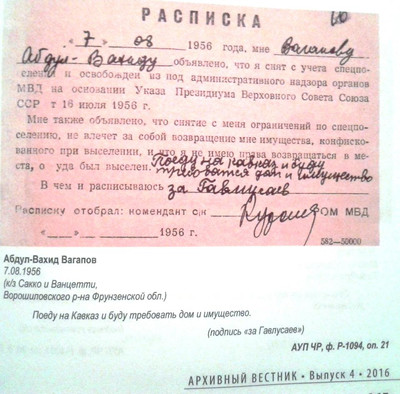 РАСПИСКА
60
« 7 » 08 1956 года, мне Вагапову
Абдул-Вахиду объявлено, что я снят с учета спецпо-
селения и освобожден из под административного надзора органов
МВД на основании Указа Президиума Верховного Совета Союза
ССР т 16 июля 1956 г.
Мне также объявлено, что снятие с меня ограничений по спецпо-
селению, не влечет за собой возвращение мне имущества, конфиско-
ванного при выселении, и что я не имею права возвращаться в ме-
ста, о уда был выселен. Поеду на кавказ и буду
требовать дом и имущество
В чем и расписываюсь за Гавлусаев
Расписку отобрал: комендант с/к ОМ МВД
« » 1956 г.
582—50000
Абдул-Вахид Вагапов
7.08.1956
(к/з Сакко и Ванцетти,
Ворошиловского р-на Фрунзенской обл.)
Поеду на Кавказ и буду требовать дом и имущество.
(подпись «за Гавлусаев»)
АУП ЧР, ф. Р-1094, оп. 21
АРХИВНЫЙ ВЕСТНИК • Выпуск 4 • 2016